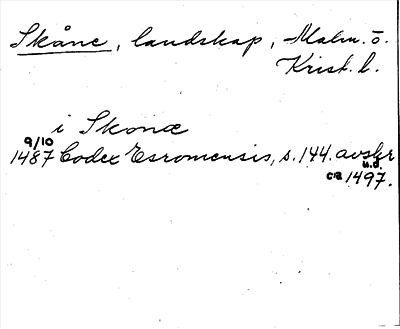 Skåne, landskap, Malm. o.
Krist. l.
i Skonæ
9/10
1487 Codex Esromensis, s. 144. avskr
u.d.
ca 1497.